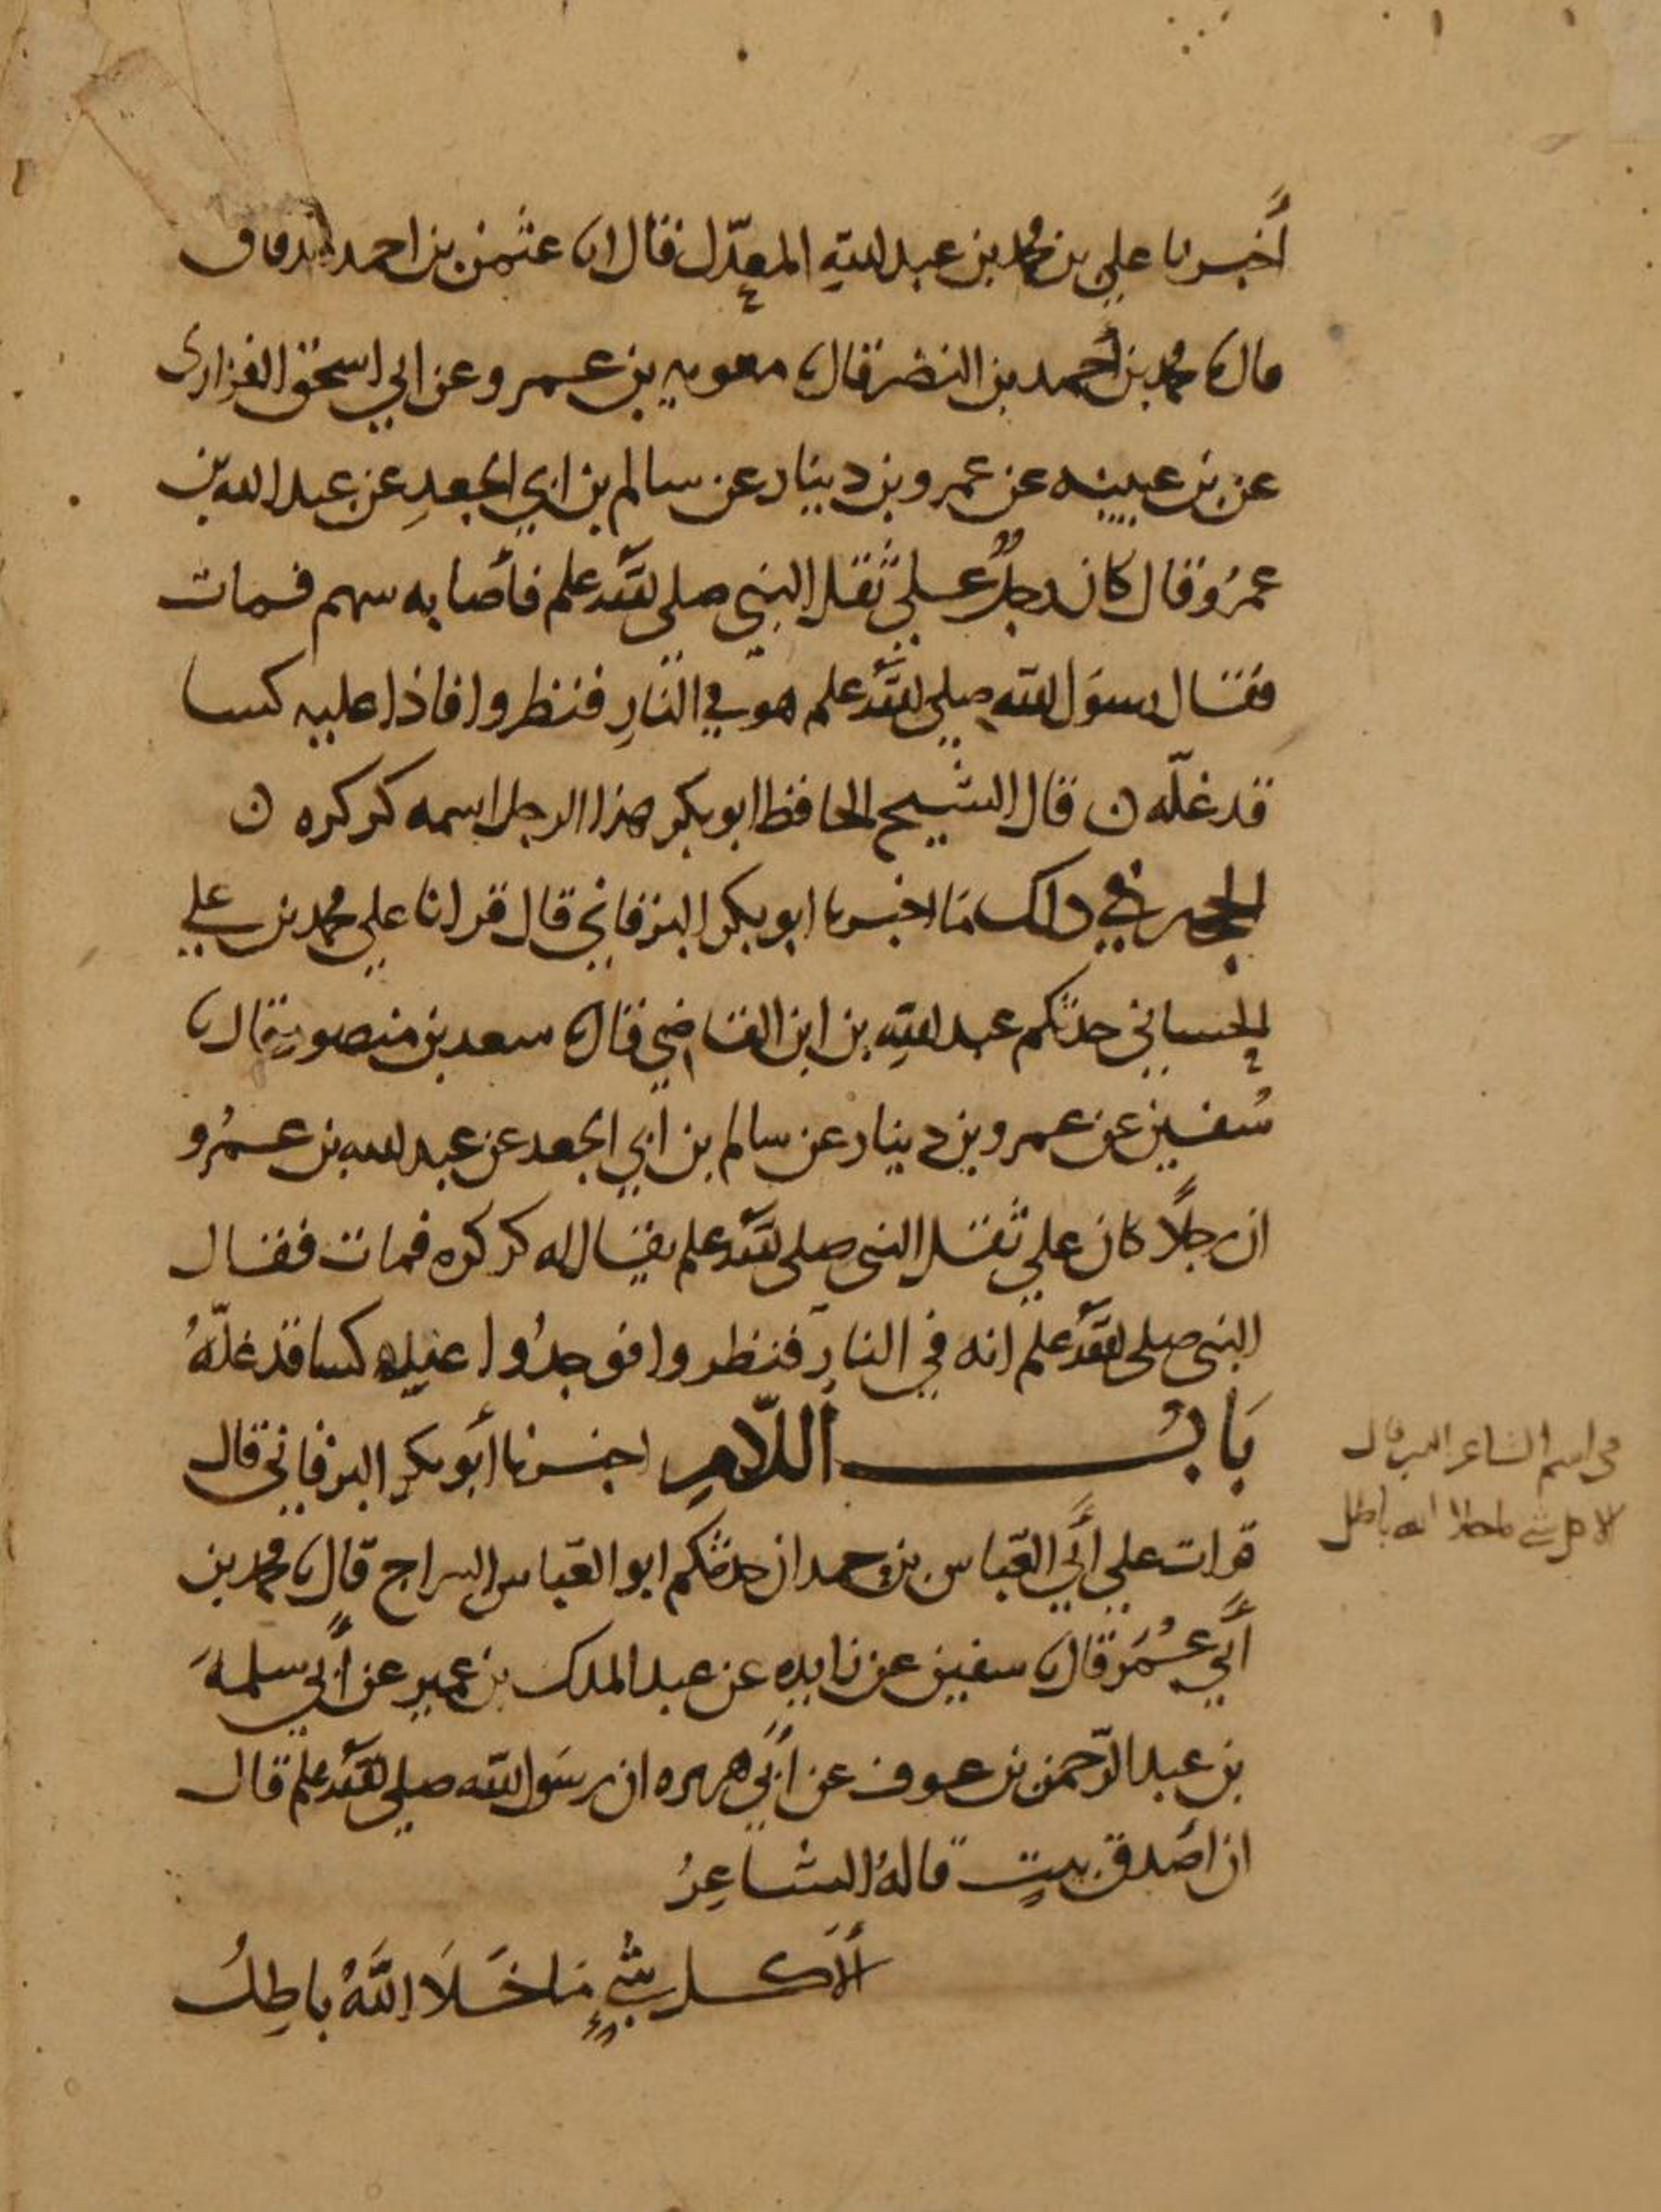 أخبرنا علي بن محمد بن عبد الله المعدّل قال انا عثمن بن احمد الدقاق
قال نا محمد بن أحمد بن النضر قال نا معويه بن عمرو عن ابي اسحق الفزاري
عن بن عيينه عن عمرو بن دينار عن سالم بن ابي الجعدِ عن عبد الله بن
عمرُو قال كان رجلٌ علي ثَقَل النبي صلى الله علم فأصابه سهم فمات
فقال رسوَل الله صلى الله علم هو في النارِ فنظروا فاذا عليه كسا
قد غلّه ن قال الشيخ الحافظ ابو بكر هذا الرجل اسمه كركره ن
الحجه في ذلك مَا اخبرنا ابو بكر البرقاني قال قرانا علي محمد بن علي
الحساني حدثكم عبد الله بن ابن القاضي قال نا سعد بن منصور قال نا
سُفين عن عمرو بن دينار عن سالم بن أبي الجعد عن عبد الله بن عمرُو
ان رجلًا كان علي ثقل النبي صلى الله علم يقال له كركره فمات فقال
النبي صلى الله علم انه في النارِ فنظروا فوجدُوا عليه كسا قد غلّهُ
بَابُ اللّامِ اخبرنا أبو بكر البرقاني قال
قرات علي أبي العباس بن حمدان حدثكم ابو العباس السراج قال نا محمد بن
أبي عُمَر قال نا سفين عن زايده عن عبد الملك بن عمير عن أبي سلمهَ
بن عبد الرّحمن بن عوف عن أبي هريره ان رسَول الله صلى الله علم قال
ان أصَدق بيتٍ قالهُ الشاعِرُ
ألَا كل شيءٍ مَا خَلَا اللَّهُ باطِلُ
في اسم الشاعر الذي قال
الا كل شي ما خلا الله باطل